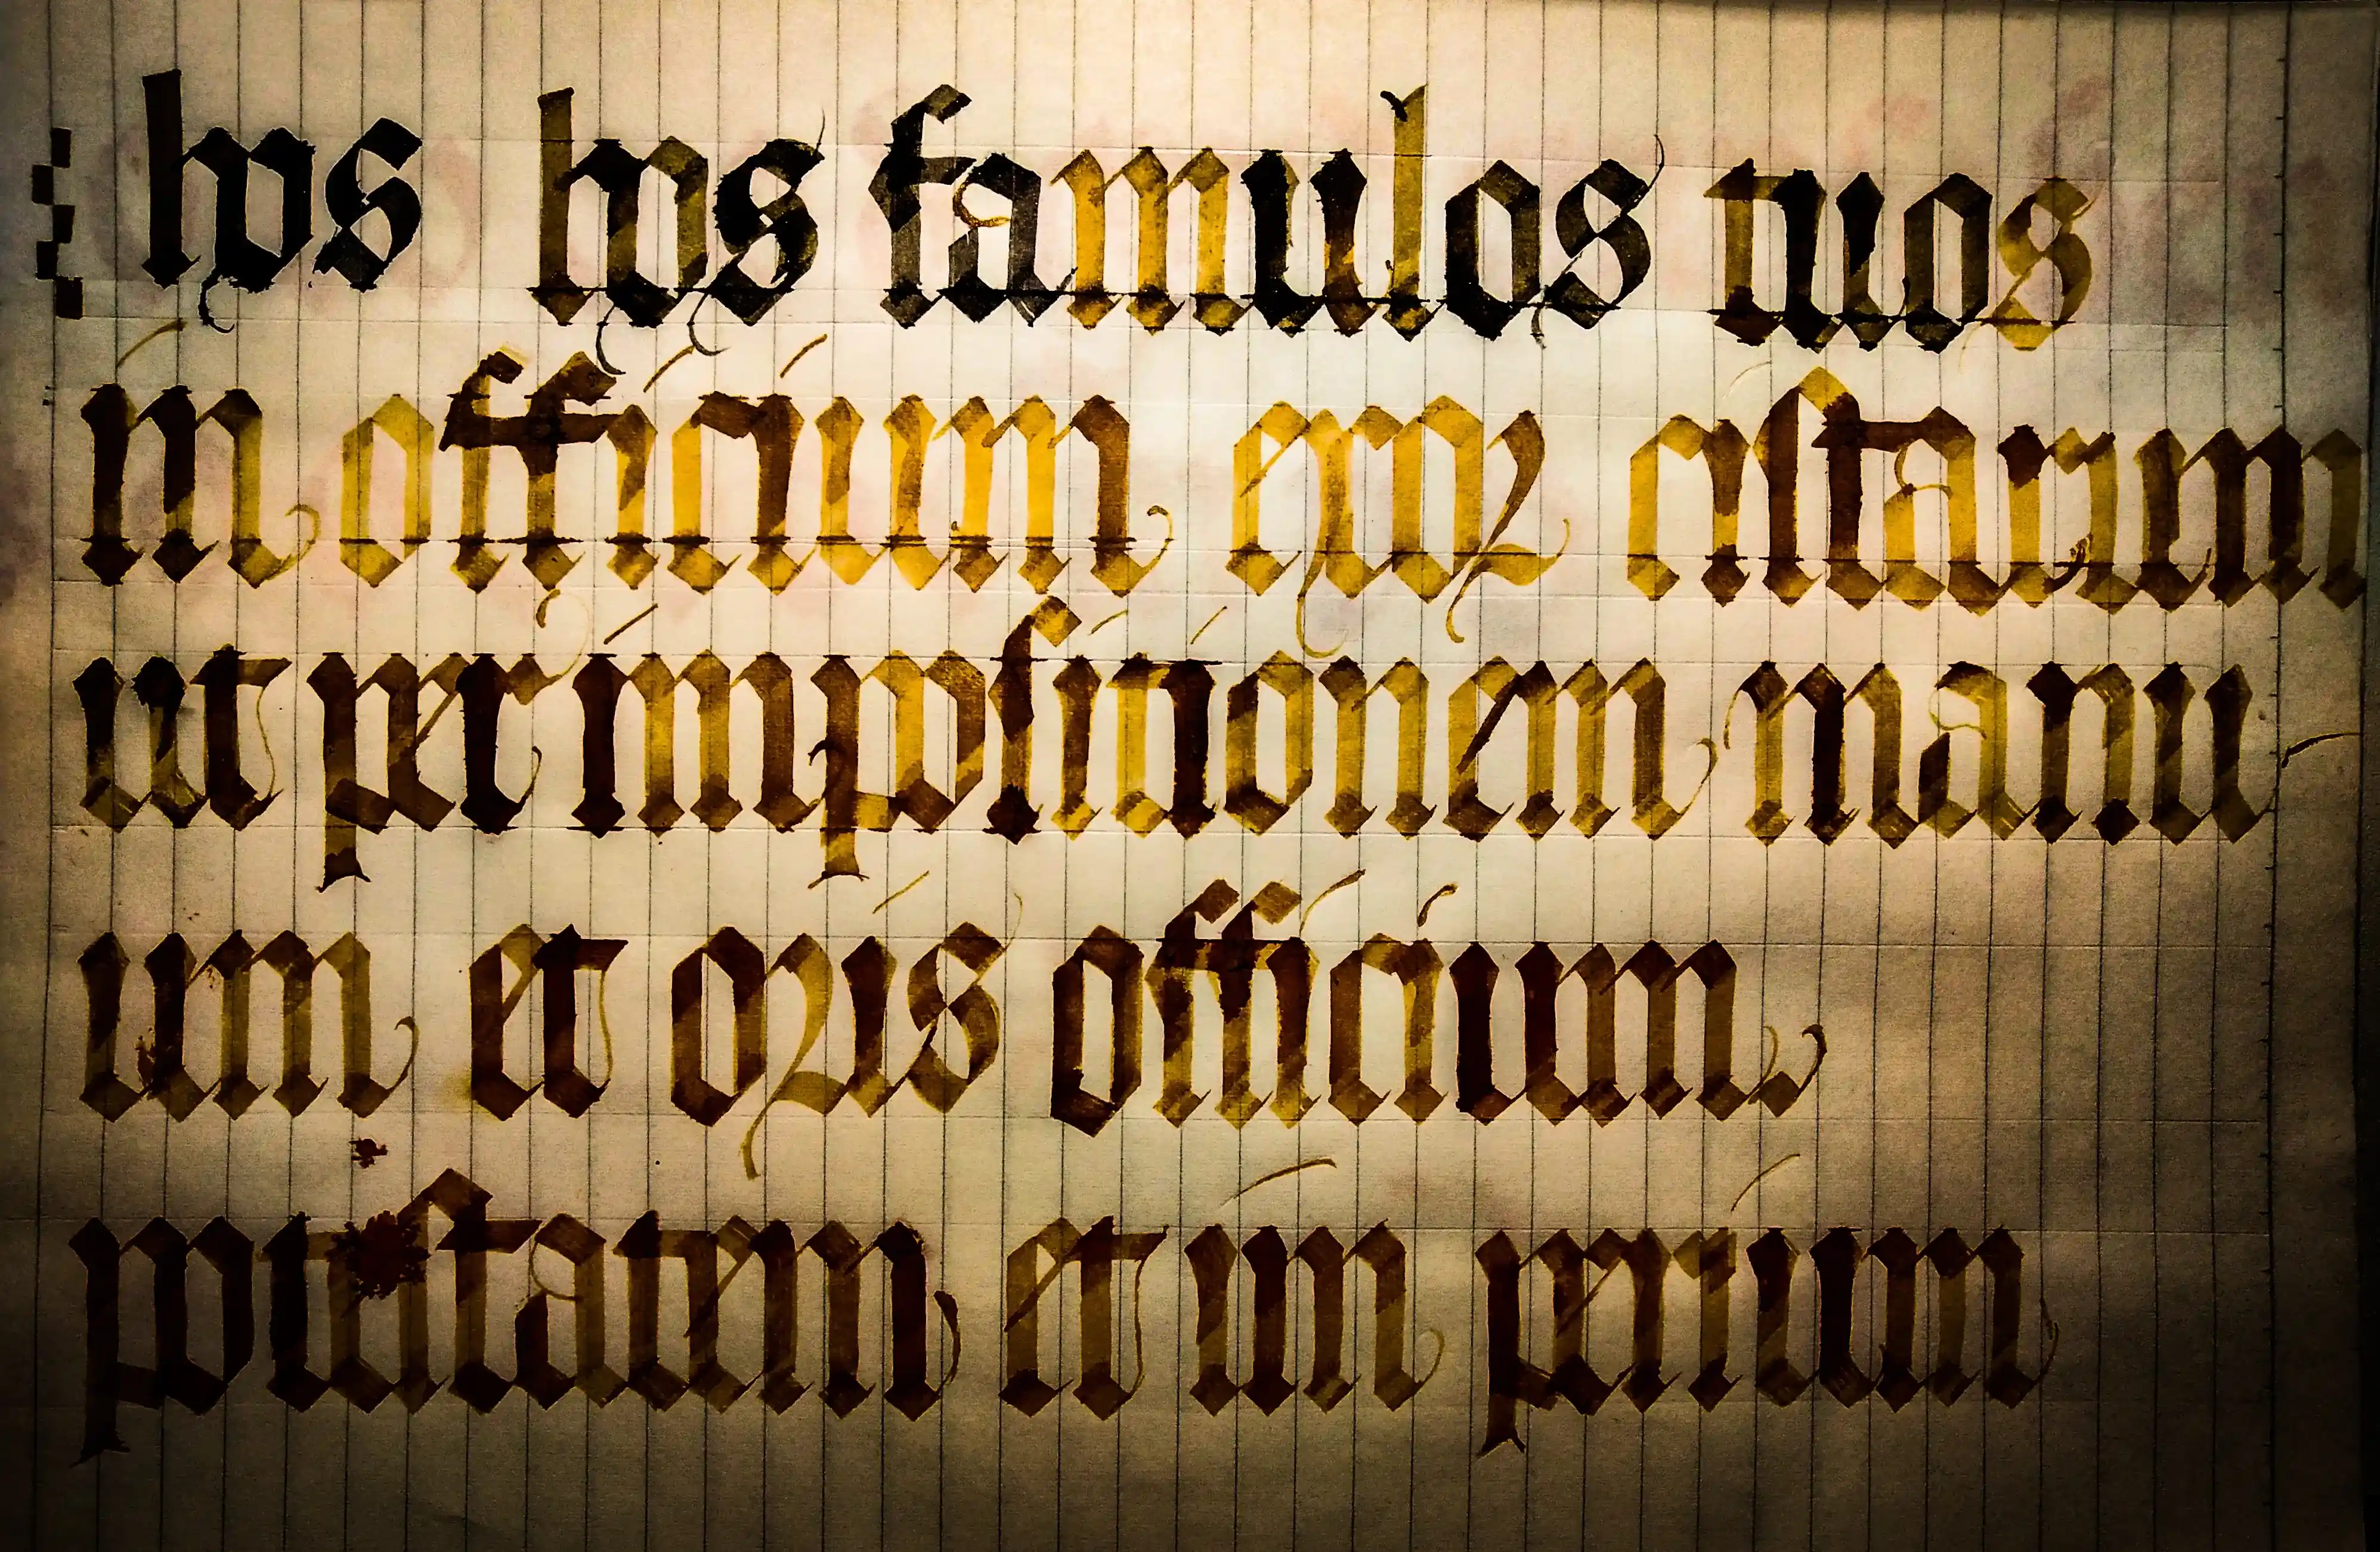 hos hos famulos tuos
in officium exoꝛ ciſtarum
ut per impoſitionem manu-
um et oꝛis officium.
poteſtatem et im perium